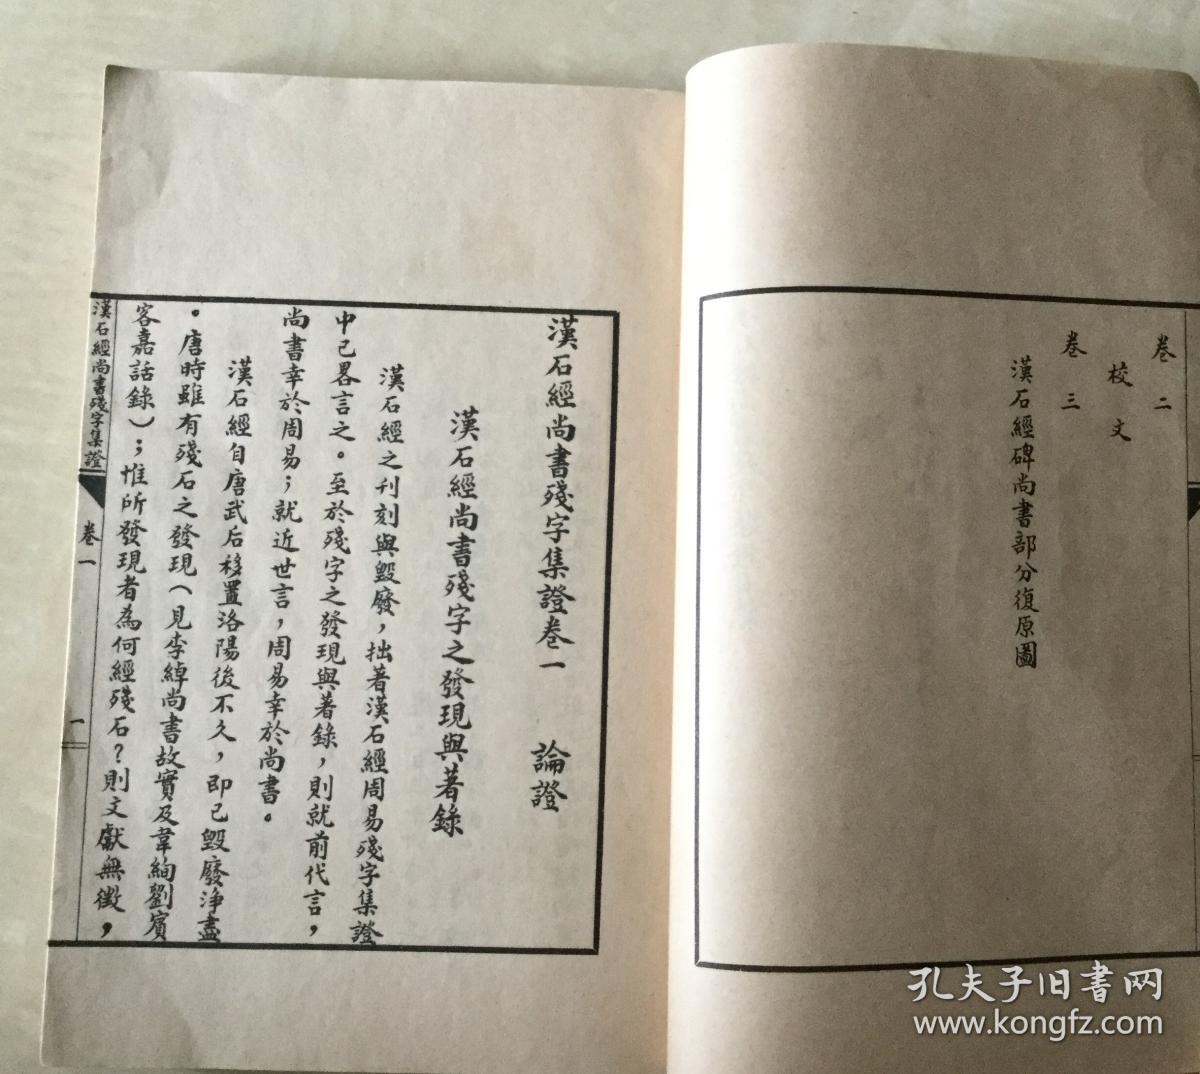 卷二
校文
卷三
漢石經碑尚書部分復原圖
漢石經尚書殘字集證卷一　論證
漢石經尚書殘字之發現與著錄
漢石經之刊刻與毀廢，拙著漢石經周易殘字集證
中已畧言之。至於殘字之發現與著錄，則就前代言，
尚書幸於周易；就近世言，周易幸於尚書。
漢石經自唐武后移置洛陽後不久，即已毀廢淨盡
。唐時雖有殘石之發現（見李綽尚書故實及韋絢劉賓
客嘉話錄）；惟所發現者為何經殘石？則文獻無徵，
漢石經尚書殘字集證
卷一
一
孔夫子旧书网
www.kongfz.com